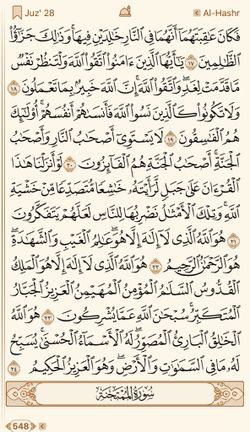 Juz' 28 Al-Hashr
فَكَانَ عَٰقِبَتَهُمَآ أَنَّهُمَا فِى ٱلنَّارِ خَٰلِدَيْنِ فِيهَا ۚ وَذَٰلِكَ جَزَٰٓؤُا۟
ٱلظَّٰلِمِينَ ١٧ يَٰٓأَيُّهَا ٱلَّذِينَ ءَامَنُوا۟ ٱتَّقُوا۟ ٱللَّهَ وَلْتَنظُرْ نَفْسٌ
مَّا قَدَّمَتْ لِغَدٍ ۖ وَٱتَّقُوا۟ ٱللَّهَ ۚ إِنَّ ٱللَّهَ خَبِيرٌۢ بِمَا تَعْمَلُونَ ١٨
وَلَا تَكُونُوا۟ كَٱلَّذِينَ نَسُوا۟ ٱللَّهَ فَأَنسَىٰهُمْ أَنفُسَهُمْ ۚ أُو۟لَٰٓئِكَ
هُمُ ٱلْفَٰسِقُونَ ١٩ لَا يَسْتَوِىٓ أَصْحَٰبُ ٱلنَّارِ وَأَصْحَٰبُ
ٱلْجَنَّةِ ۚ أَصْحَٰبُ ٱلْجَنَّةِ هُمُ ٱلْفَآئِزُونَ ٢٠ لَوْ أَنزَلْنَا هَٰذَا
ٱلْقُرْءَانَ عَلَىٰ جَبَلٍ لَّرَأَيْتَهُۥ خَٰشِعًا مُّتَصَدِّعًا مِّنْ خَشْيَةِ
ٱللَّهِ ۚ وَتِلْكَ ٱلْأَمْثَٰلُ نَضْرِبُهَا لِلنَّاسِ لَعَلَّهُمْ يَتَفَكَّرُونَ
٢١ هُوَ ٱللَّهُ ٱلَّذِى لَآ إِلَٰهَ إِلَّا هُوَ ۖ عَٰلِمُ ٱلْغَيْبِ وَٱلشَّهَٰدَةِ ۖ
هُوَ ٱلرَّحْمَٰنُ ٱلرَّحِيمُ ٢٢ هُوَ ٱللَّهُ ٱلَّذِى لَآ إِلَٰهَ إِلَّا هُوَ ٱلْمَلِكُ
ٱلْقُدُّوسُ ٱلسَّلَٰمُ ٱلْمُؤْمِنُ ٱلْمُهَيْمِنُ ٱلْعَزِيزُ ٱلْجَبَّارُ
ٱلْمُتَكَبِّرُ ۚ سُبْحَٰنَ ٱللَّهِ عَمَّا يُشْرِكُونَ ٢٣ هُوَ ٱللَّهُ
ٱلْخَٰلِقُ ٱلْبَارِئُ ٱلْمُصَوِّرُ ۖ لَهُ ٱلْأَسْمَآءُ ٱلْحُسْنَىٰ ۚ يُسَبِّحُ
لَهُۥ مَا فِى ٱلسَّمَٰوَٰتِ وَٱلْأَرْضِ ۖ وَهُوَ ٱلْعَزِيزُ ٱلْحَكِيمُ ٢٤
سُورَةُ ٱلْمُمْتَحَنَةِ
548